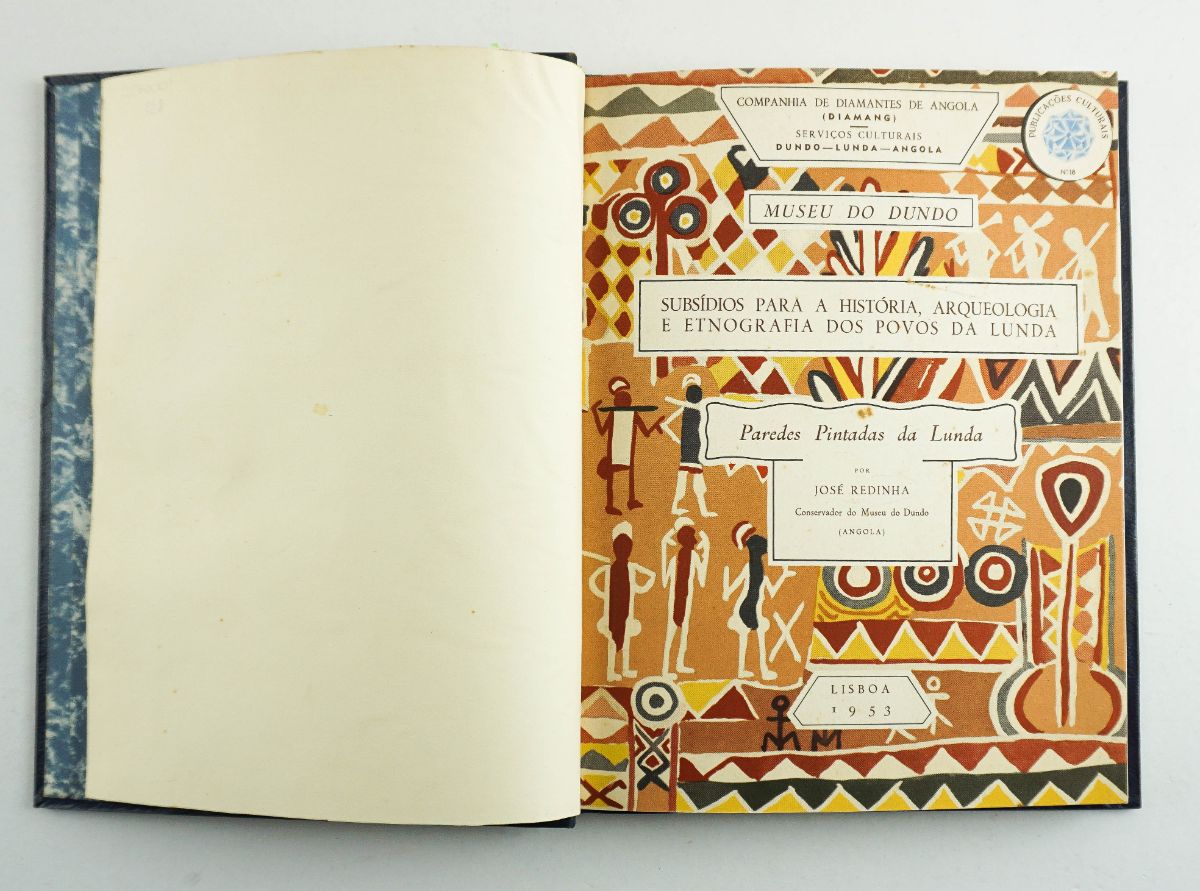 COMPANHIA DE DIAMANTES DE ANGOLA
(DIAMANG)
SERVIÇOS CULTURAIS
DUNDO—LUNDA—ANGOLA
PUBLICAÇÕES CULTURAIS
Nº 18
MUSEU DO DUNDO
SUBSÍDIOS PARA A HISTÓRIA, ARQUEOLOGIA
E ETNOGRAFIA DOS POVOS DA LUNDA
Paredes Pintadas da Lunda
POR
JOSÉ REDINHA
Conservador do Museu do Dundo
(ANGOLA)
LISBOA
1953